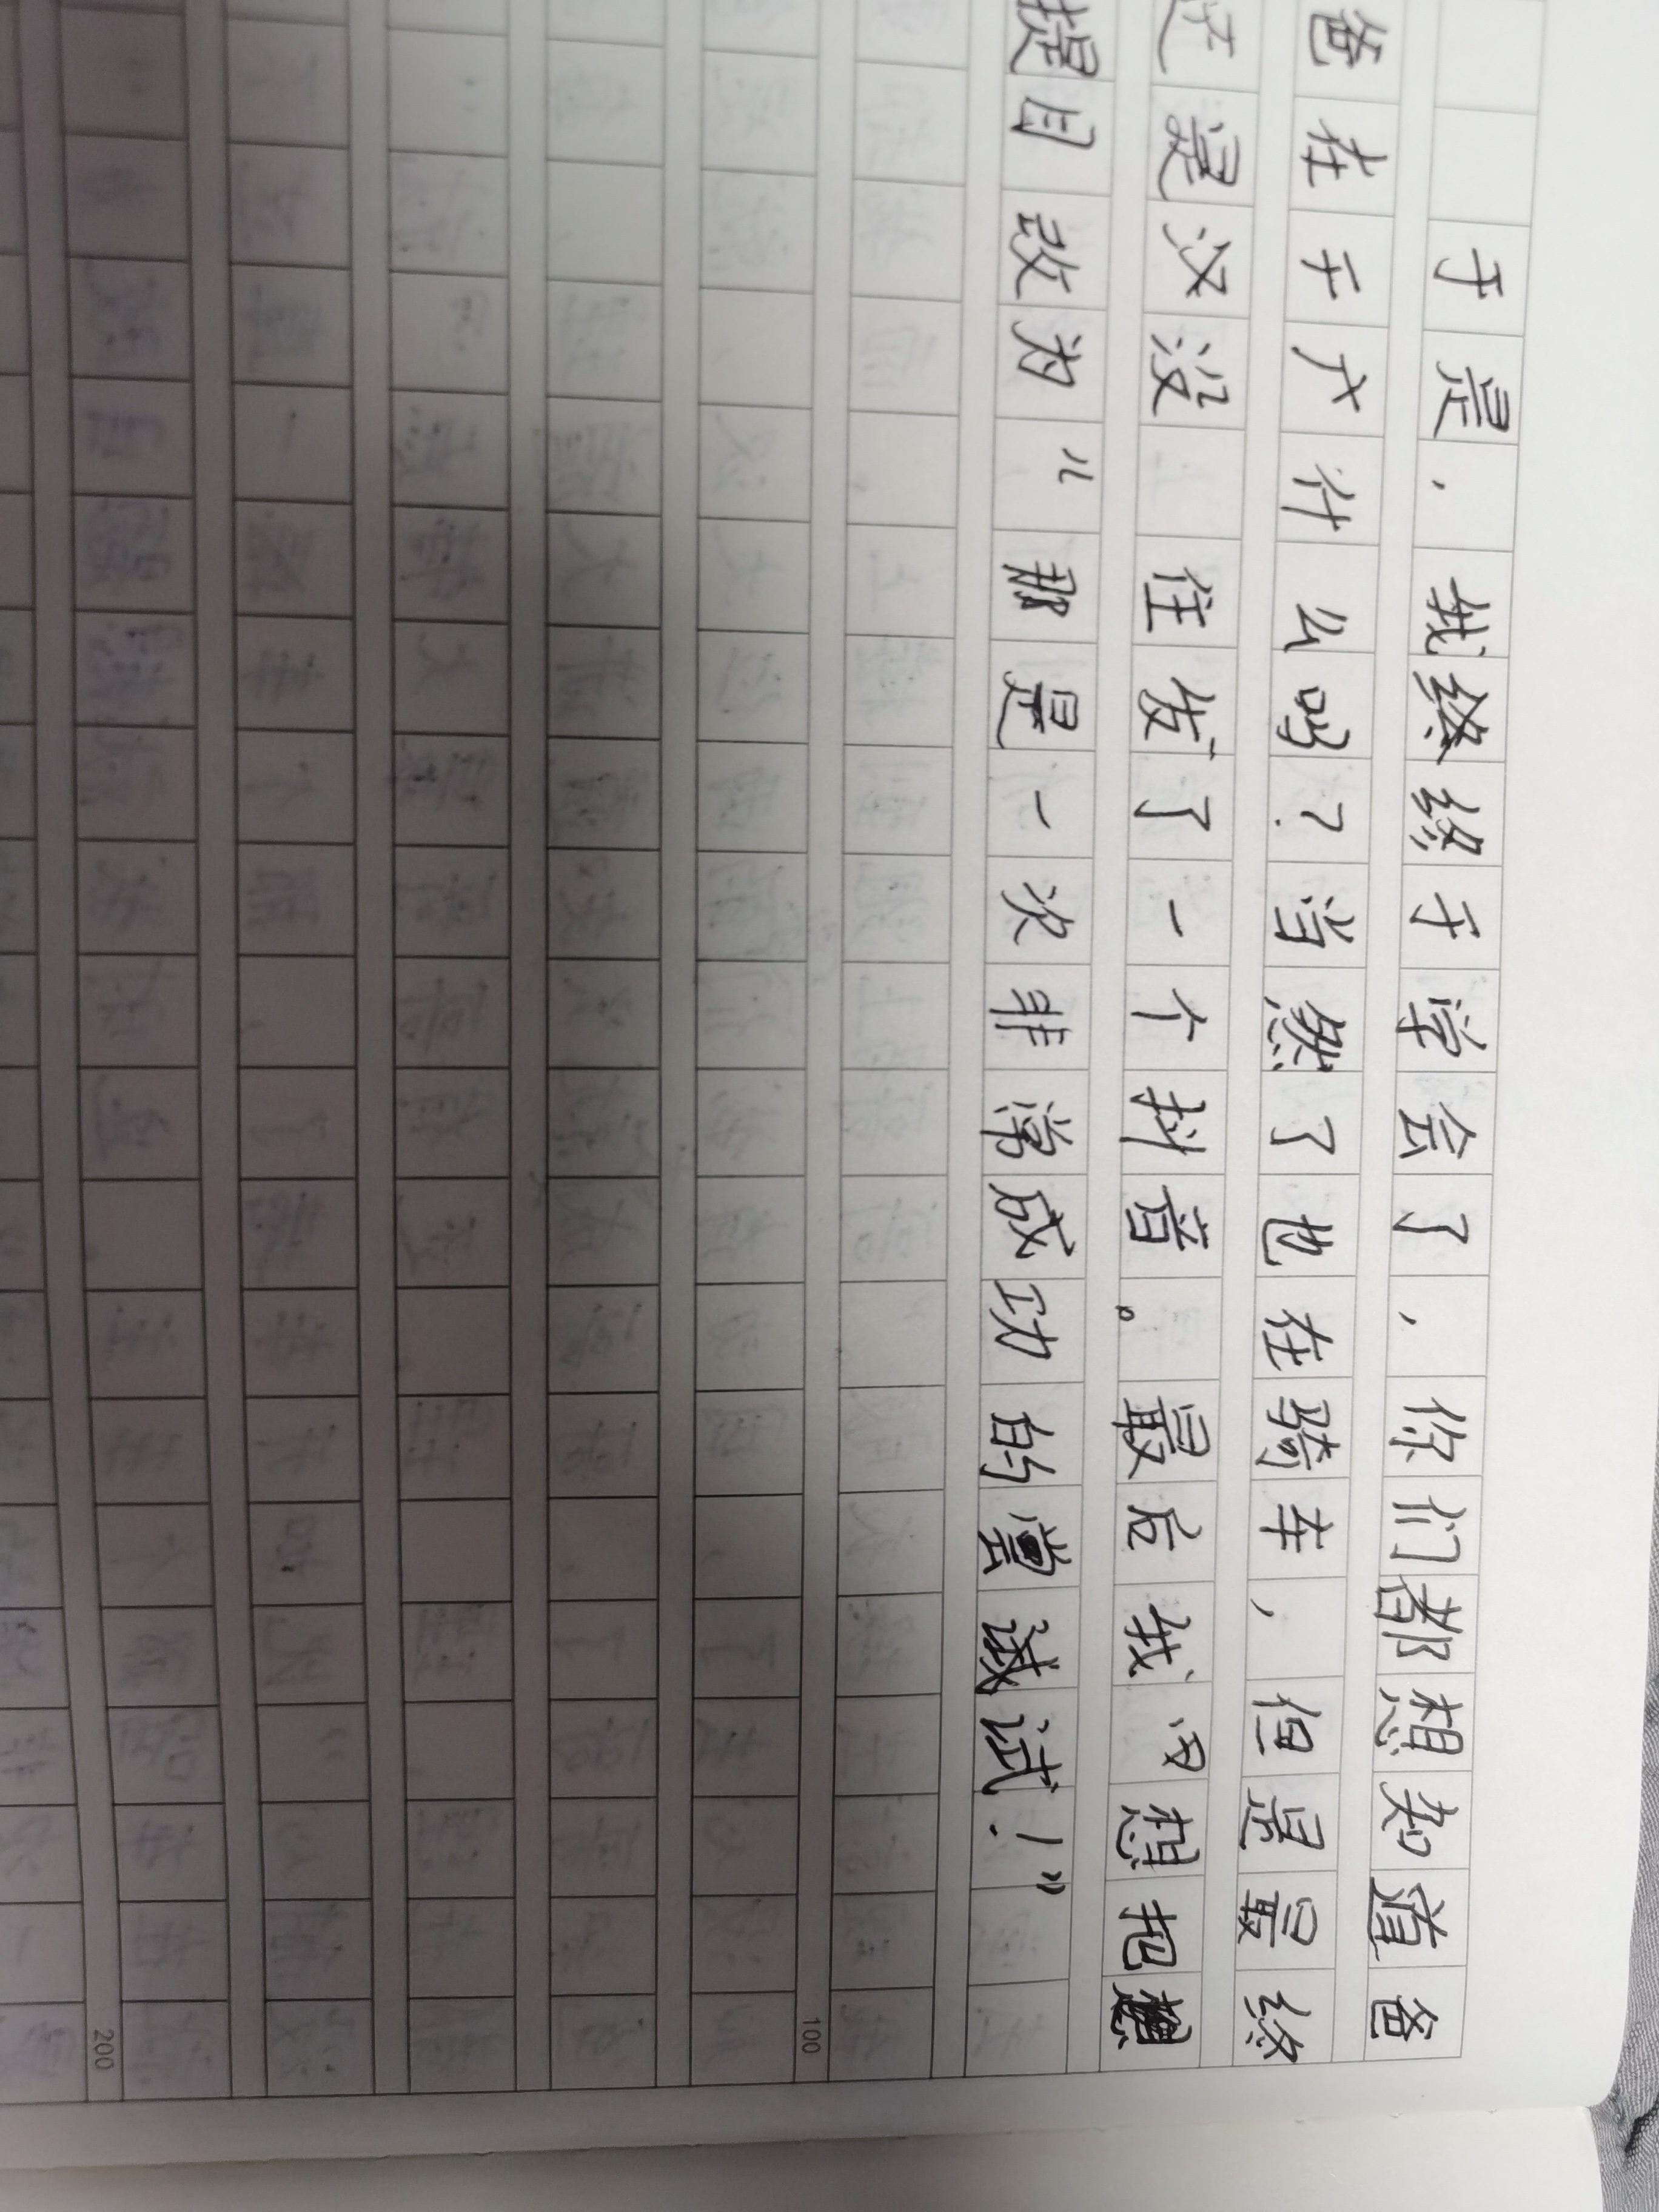 于是，我终终于学会了，你们都想知道爸
爸在干什么吗？当然了也在骑车，但是最终
还是没住发了一个抖音。最后我想把
提目改为“那是一次非常成功的尝试！”
100
200